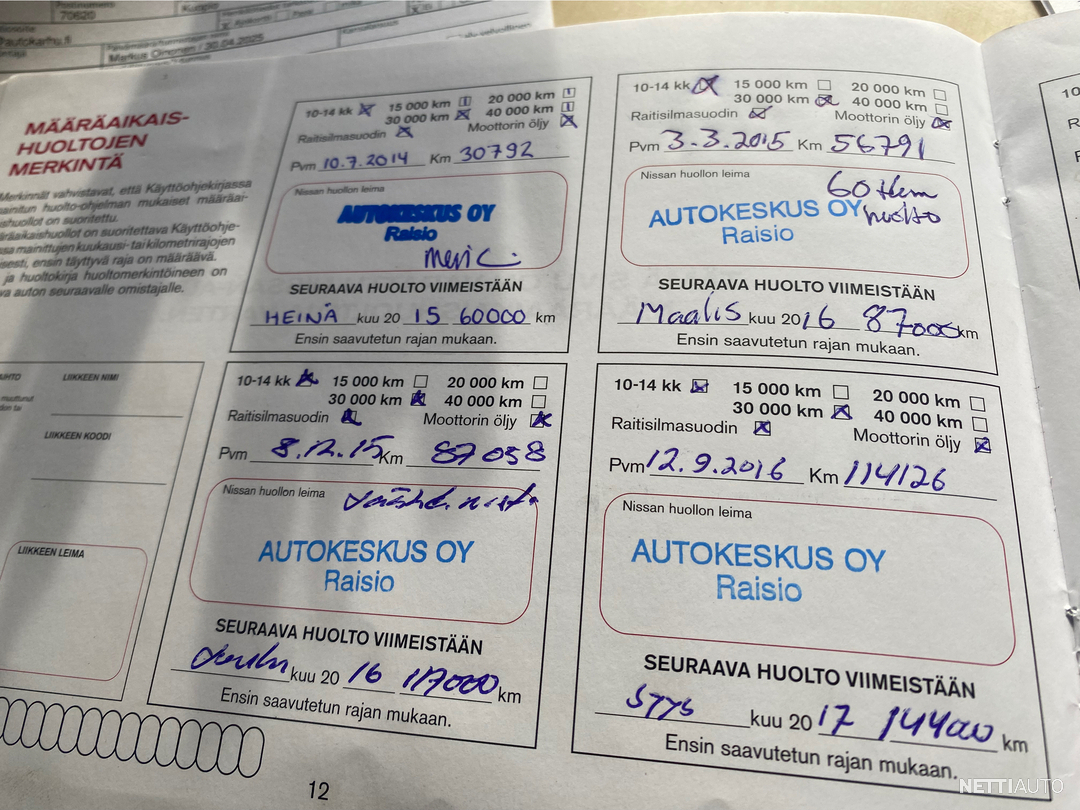 70620
Kuopio
@autokarhu.fi
Markus Oinonen / 30.04.2025
MÄÄRÄAIKAIS-
HUOLTOJEN
MERKINTÄ
Merkinnät vahvistavat, että Käyttöohjekirjassa
mainitun huolto-ohjelman mukaiset määräai-
kaishuollot on suoritettu.
Määräaikaishuollot on suoritettava Käyttöohje-
ssa mainittujen kuukausi- tai kilometrirajojen
isesti, ensin täyttyvä raja on määräävä.
ja huoltokirja huoltomerkintöineen on
va auton seuraavalle omistajalle.
LIIKKEEN NIMI
LIIKKEEN KOODI
LIIKKEEN LEIMA
10-14 kk 15 000 km 20 000 km
30 000 km 40 000 km
Raitisilmasuodin Moottorin öljy
Pvm 10.7.2014 Km 30792
Nissan huollon leima
AUTOKESKUS OY
Raisio
SEURAAVA HUOLTO VIIMEISTÄÄN
HEINÄ kuu 20 15 60000 km
Ensin saavutetun rajan mukaan.
10-14 kk 15 000 km 20 000 km
30 000 km 40 000 km
Raitisilmasuodin Moottorin öljy
Pvm 3.3.2015 Km 56791
Nissan huollon leima
60 tkm
huolto
AUTOKESKUS OY
Raisio
SEURAAVA HUOLTO VIIMEISTÄÄN
Maalis kuu 20 16 87000 km
Ensin saavutetun rajan mukaan.
10-14 kk 15 000 km 20 000 km
30 000 km 40 000 km
Raitisilmasuodin Moottorin öljy
Pvm 8.12.15 Km 87058
Nissan huollon leima
AUTOKESKUS OY
Raisio
SEURAAVA HUOLTO VIIMEISTÄÄN
Joulu kuu 20 16 117000 km
Ensin saavutetun rajan mukaan.
10-14 kk 15 000 km 20 000 km
30 000 km 40 000 km
Raitisilmasuodin Moottorin öljy
Pvm 12.9.2016 Km 114126
Nissan huollon leima
AUTOKESKUS OY
Raisio
SEURAAVA HUOLTO VIIMEISTÄÄN
SYYS kuu 20 17 144000 km
Ensin saavutetun rajan mukaan.
12
NETTIAUTO